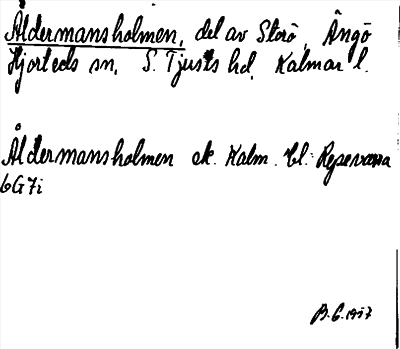 Åldermansholmen, del av Storö, Ängö
Hjorteds sn, S. Tjusts hd, Kalmar l.
Åldermansholmen ek. Kalm. bl:
6G7i
B.G. 1957